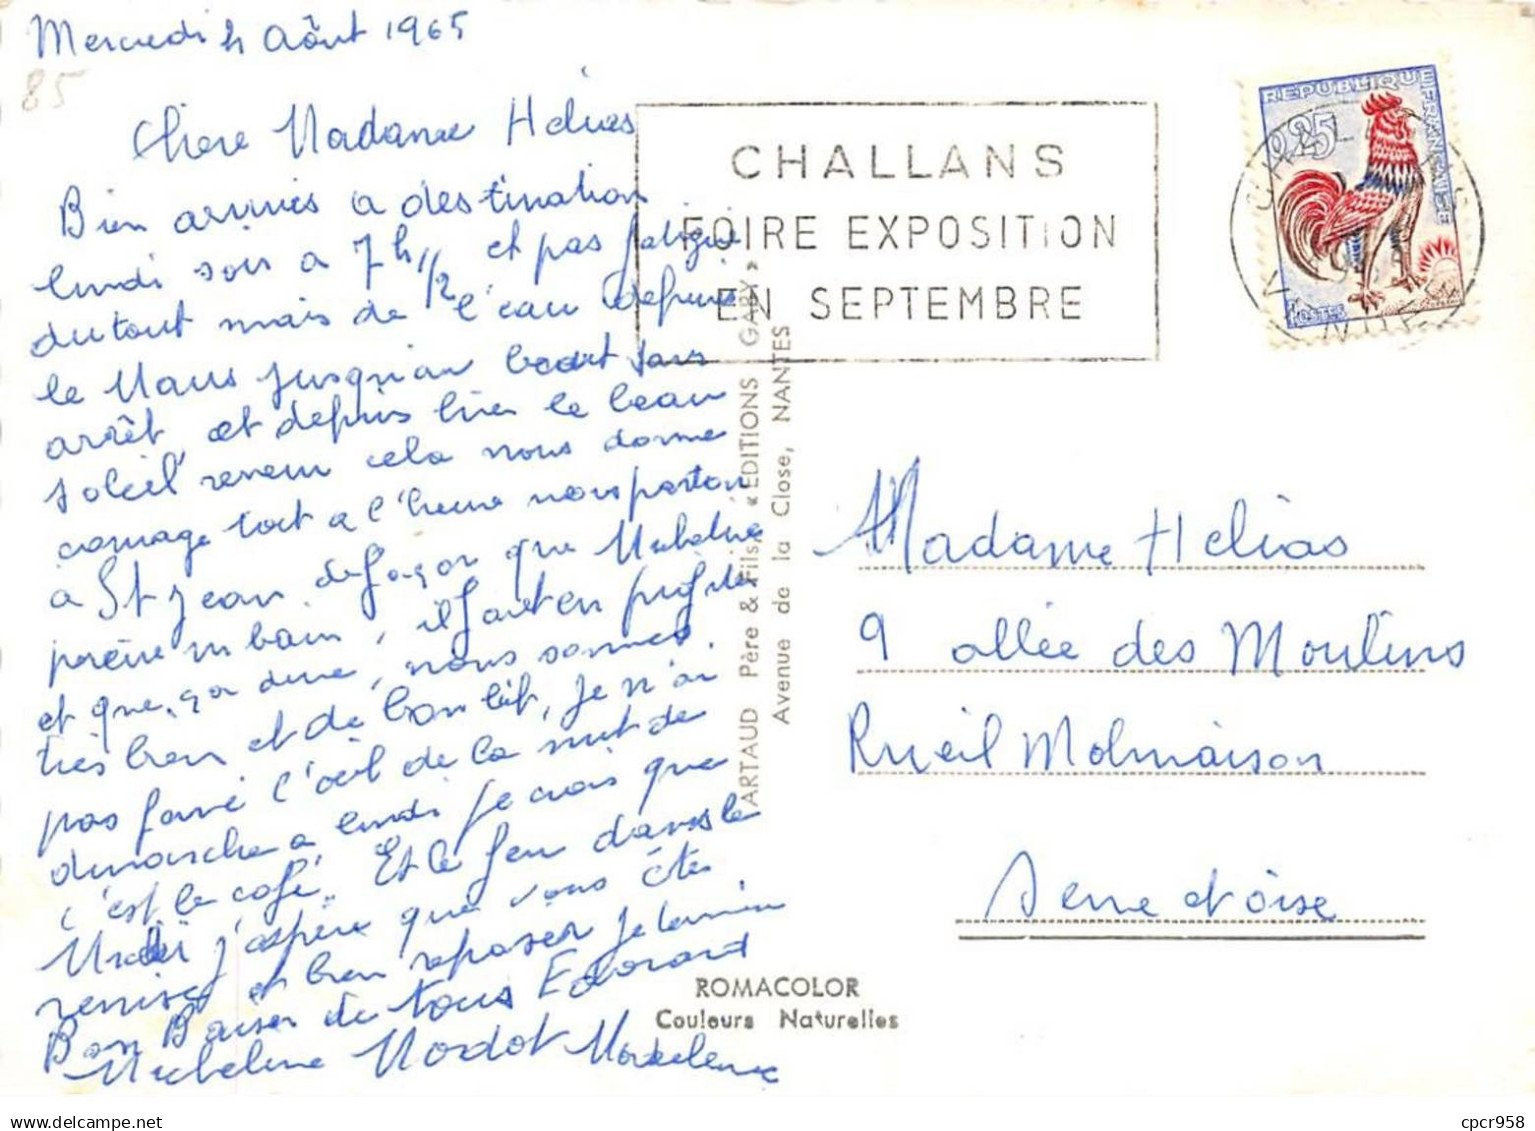 Mercredi 4 Août 1965
85
Chere Madame Helias
Bien arrivés a destination
lundi soir a 7h 1/2 et pas fatigué
dutout mais de l'eau depuis
le Mans jusqu'au bout sans
arrêt, et depuis hier le beau
soleil revenu cela nous donne
courage tout a l'heure nous parton
a St Jean defaçon que Micheline
prenne un bain, il faut en profiter
et que ça dure, nous sommes
très bien et de bon lit, je n'ai
pas fermé l'œil de la nuit de
dimanche a lundi je crois que
c'est le café. Et le feu dans le
Midi j'espère que vous êtes
remise et bien reposer je termine
Bon Baiser de tous Edouard
Micheline Nodot Madeleine
CHALLANS
FOIRE EXPOSITION
EN SEPTEMBRE
REPUBLIQUE FRANÇAISE
0,25
POSTES
CHALLANS
VENDEE
ARTAUD Père & Fils, « EDITIONS GABY »
Avenue de la Close, NANTES
Madame Helias
9 allée des Moulins
Rueil Malmaison
Seine et Oise
ROMACOLOR
Couleurs Naturelles
cpcr958